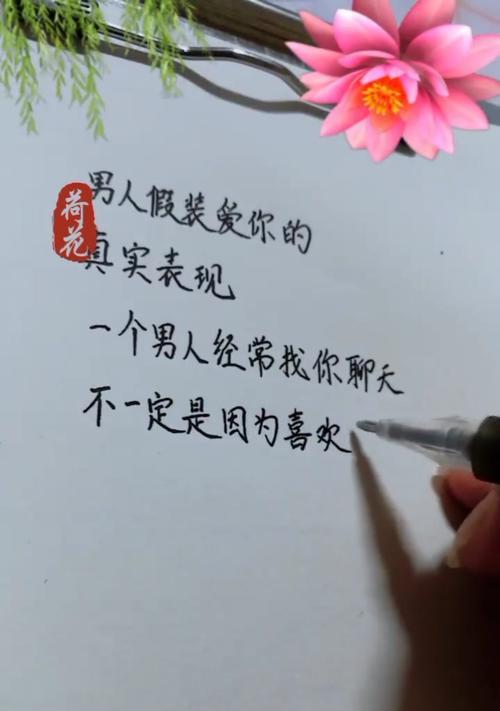 男人假装爱你的
荷花
真实表现
一个男人经常找你聊天
不一定是因为喜欢